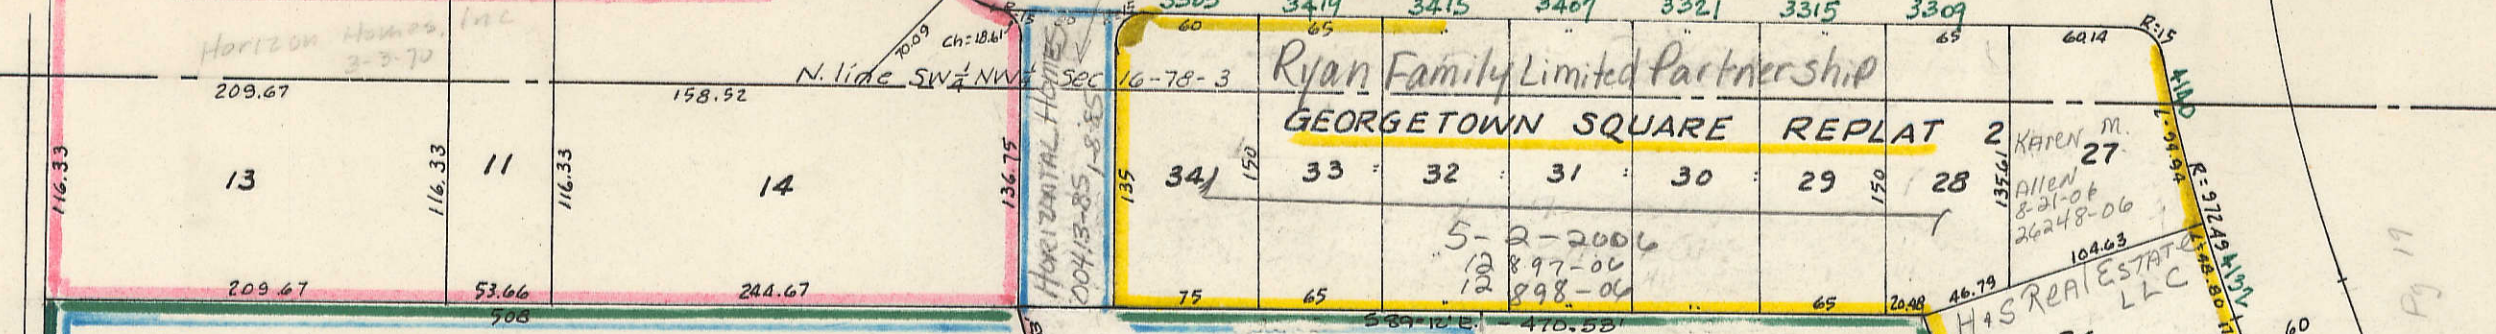 3419
3415
3407
3321
3315
3309
R=15
Horizon Homes, Inc
3-3-70
70.09
Ch=18.61
60
65
"
"
"
"
65
60.14
N. line SW¼ NW¼ Sec 16-78-3
Ryan Family Limited Partnership
4140
209.67
158.52
GEORGETOWN SQUARE REPLAT 2
116.33
13
116.33
11
116.33
14
136.75
HORIZONTAL HOMES
00413-85, 1-8-85
135
34
150
33
32
31
30
29
150
28
135.61
KAREN M.
27
Allen
8-21-06
26248-06
L=94.94
R=972.49
4132
L=48.80
5-2-2006
12 897-06
12 898-06
104.63
46.79
H&S Real Estate
LLC
Pg 19
209.67
53.66
244.67
75
65
"
"
"
65
20.48
508
S89°12'E. 470.58'
60